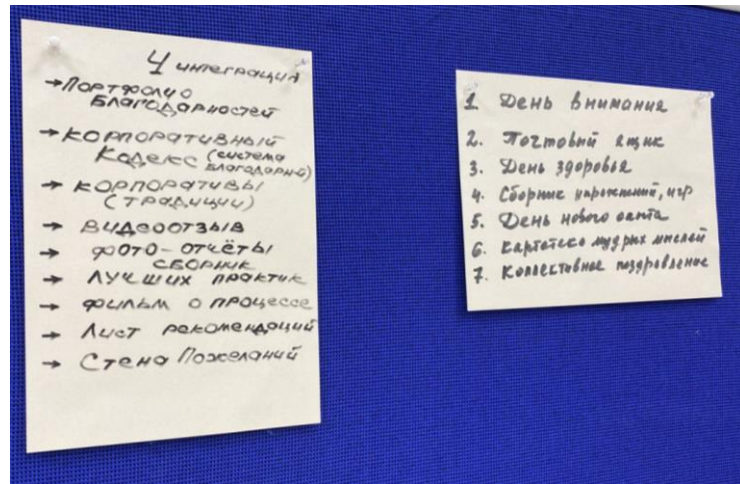 4 интеграция
→ Портфолио
Благодарностей
→ Корпоративный
Кодекс (система
благодарний)
→ Корпоративы
(традиции)
→ Видеоотзыв
→ фото-отчёты
сборник
→ лучших практик
→ фильм о процессе
→ Лист рекомендаций
→ Стена Пожеланий
1. День внимания
2. Почтовый ящик
3. День здоровья
4. Сборник упражнений, игр
5. День нового опыта
6. Картотека мудрых мыслей
7. Коллективное поздравление